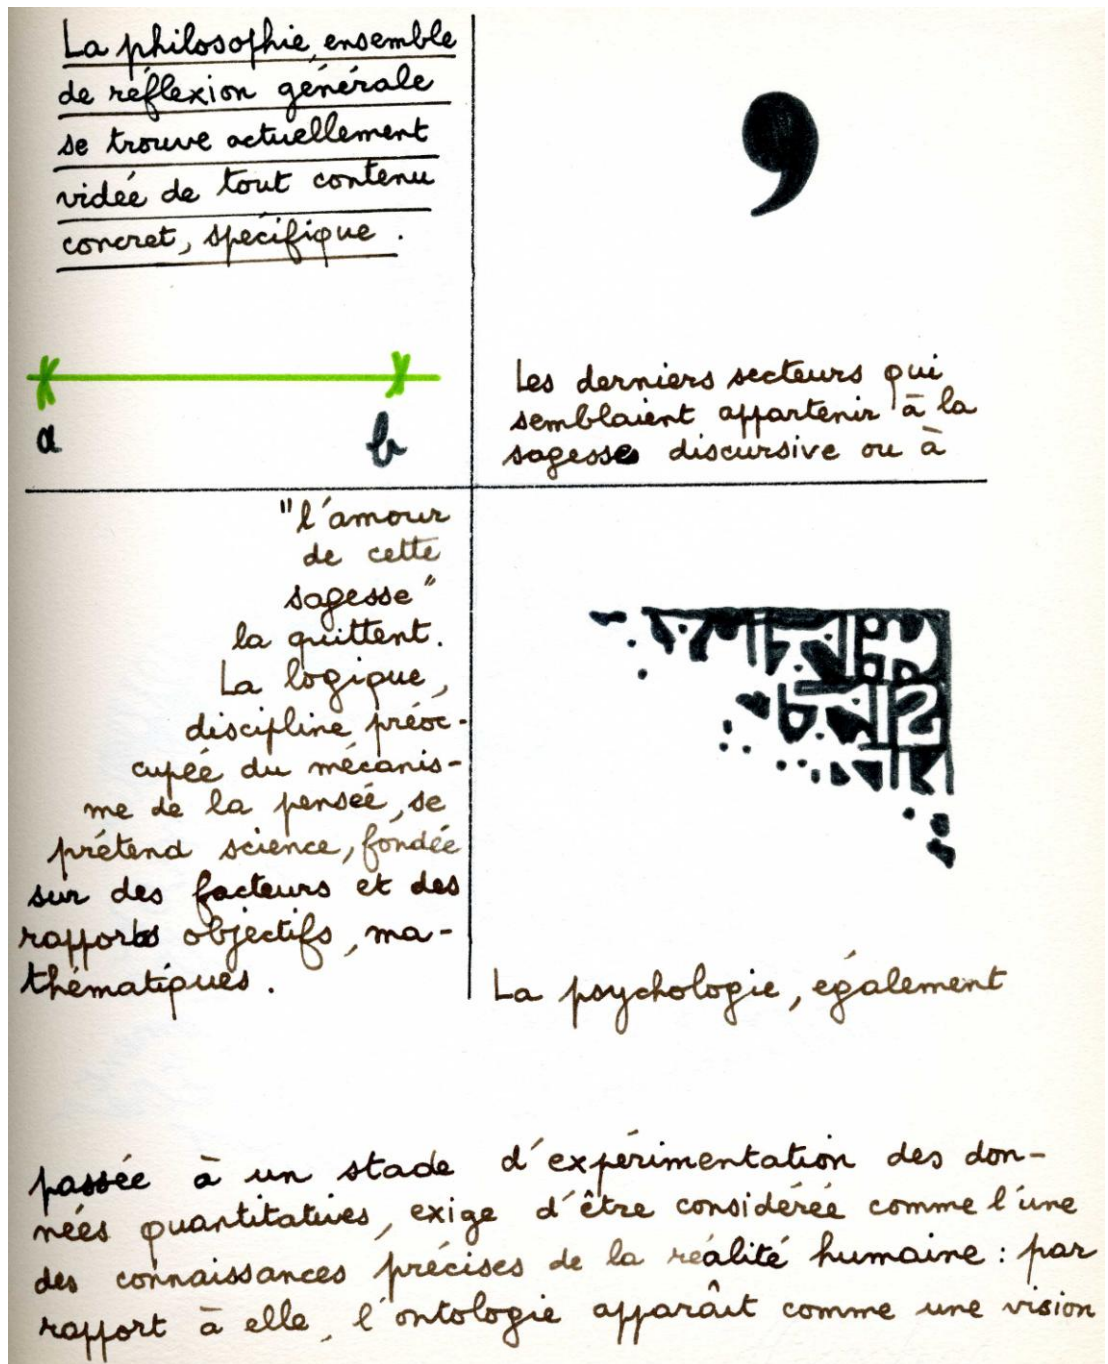 La philosophie, ensemble
de réflexion générale
se trouve actuellement
vidée de tout contenu
concret, spécifique.
a b
Les derniers secteurs qui
semblaient appartenir à la
sagesse discursive ou à
"l'amour
de cette
sagesse"
la quittent.
La logique,
discipline préoc-
cupée du mécanis-
me de la pensée, se
prétend science, fondée
sur des facteurs et des
rapports objectifs, ma-
thématiques.
La psychologie, également
passée à un stade d'expérimentation des don-
nées quantitatives, exige d'être considérée comme l'une
des connaissances précises de la réalité humaine : par
rapport à elle, l'ontologie apparaît comme une vision